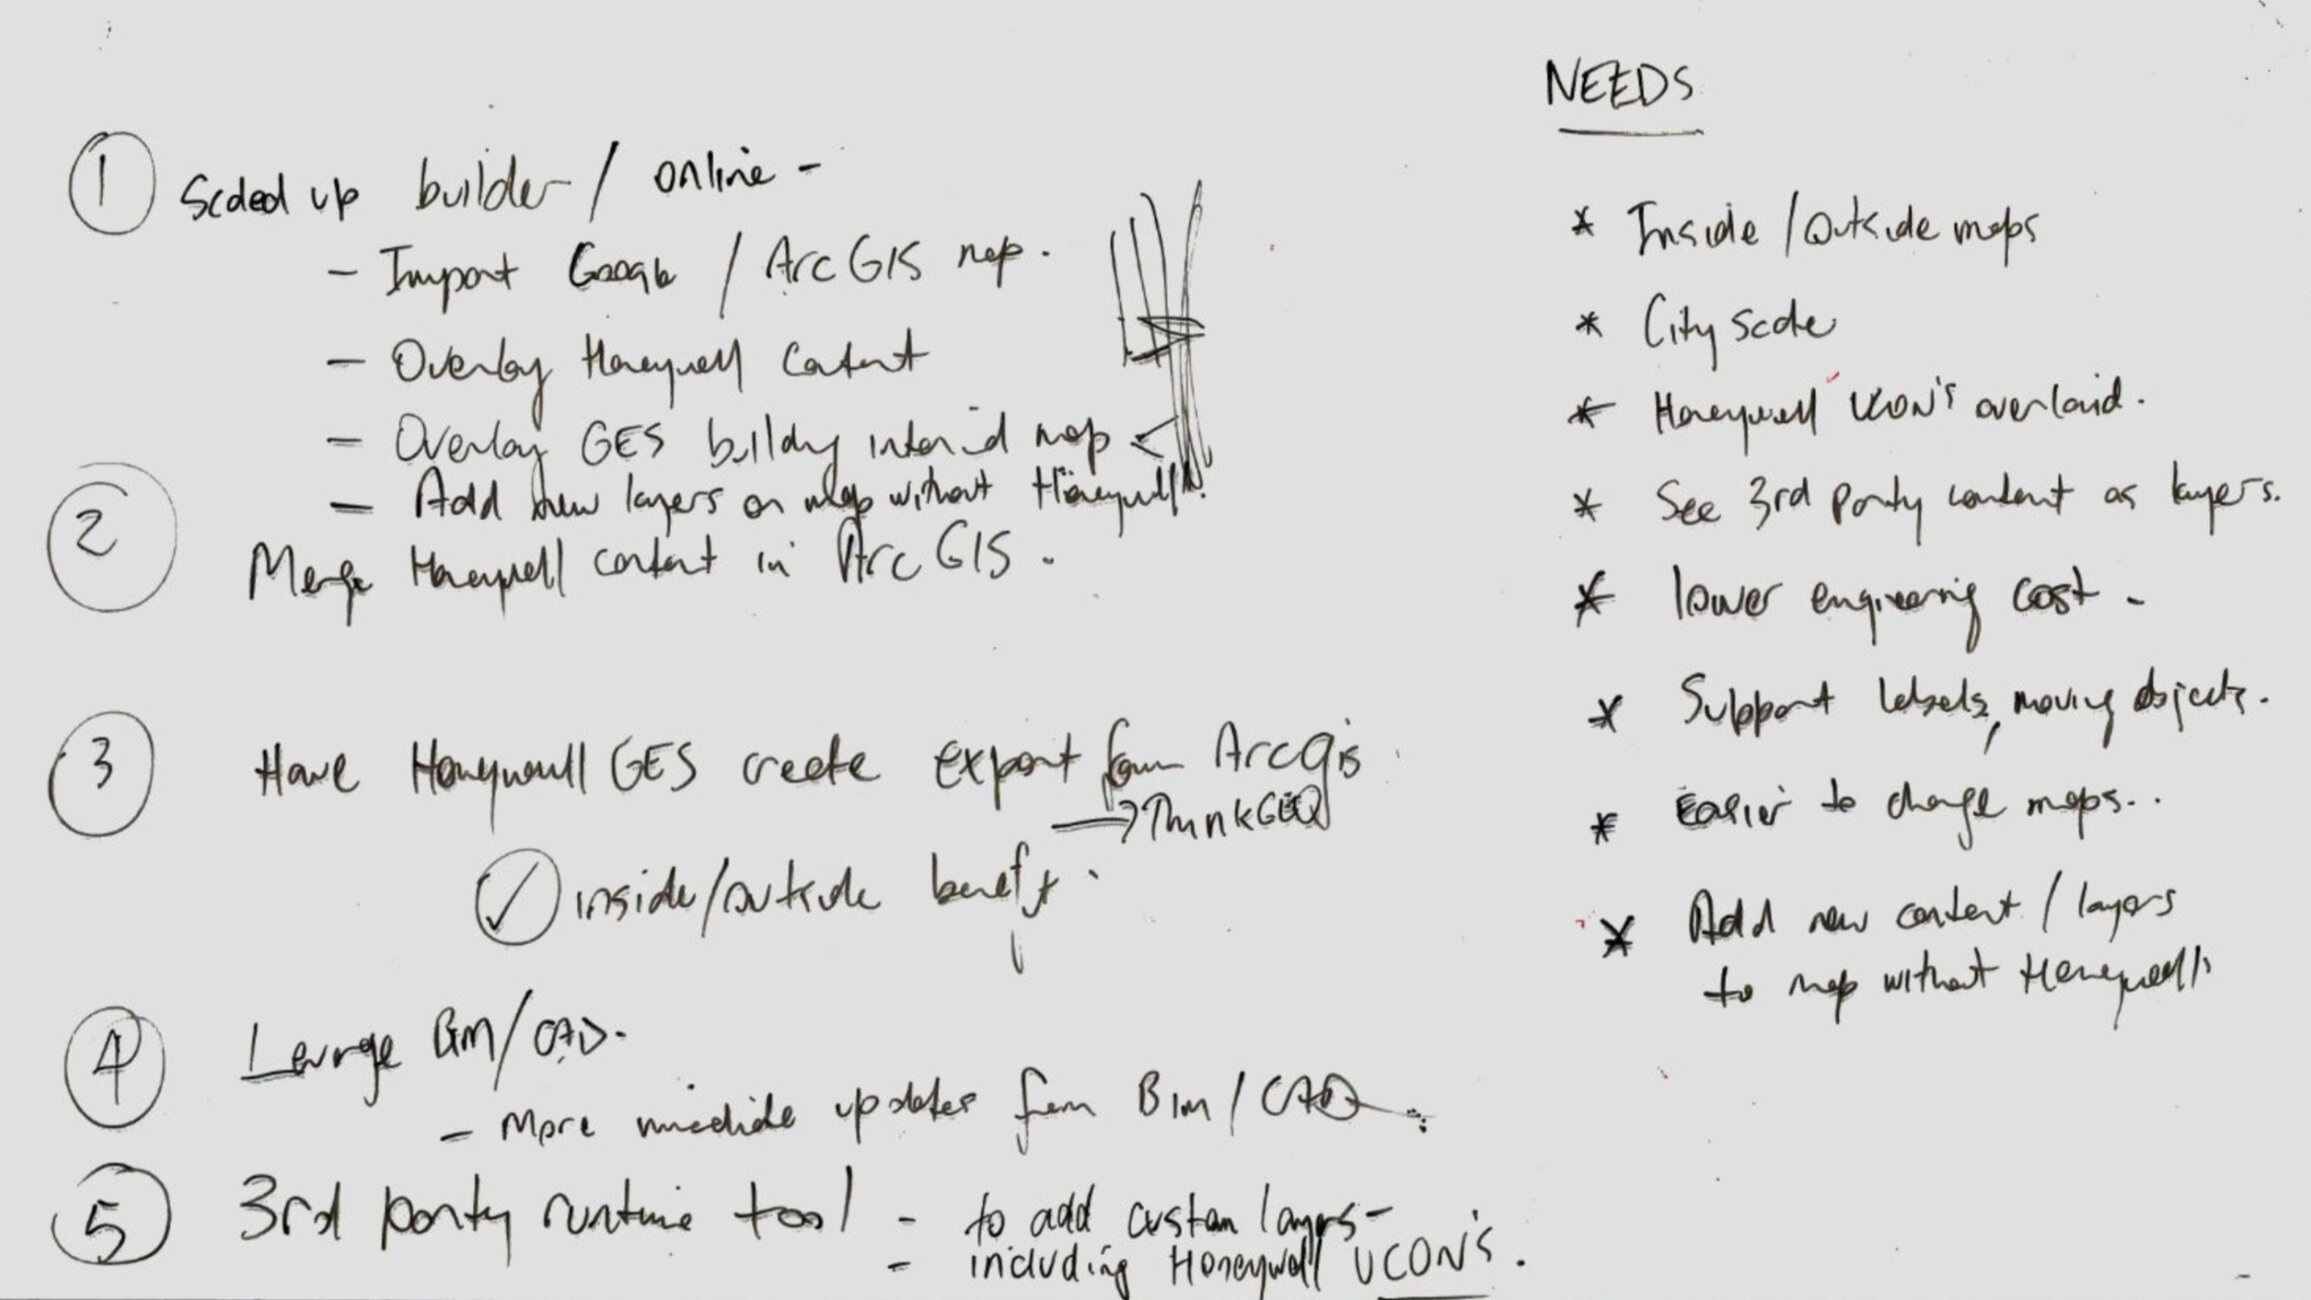 1 Scaled up builder / online -
- Import Google / ArcGIS map.
- Overlay Honeywell Content
- Overlay GES building internal map
- Add new layers on map without Honeywell.
2 Merge Honeywell content in ArcGIS.
3 Have Honeywell GES create export from Arcgis
→ ThinkGEO
✓ inside/outside benefit.
4 Leverage BIM/CAD.
- More immediate updates from BIM / CAD
5 3rd party runtime tool - to add custom layers -
- including Honeywell UCON'S.
NEEDS
* Inside / Outside maps
* City scale
* Honeywell UCON's overlaid.
* See 3rd party content as layers.
* lower engineering cost -
* Support labels, moving objects.
* Easier to change maps..
* Add new content / layers
to map without Honeywell.